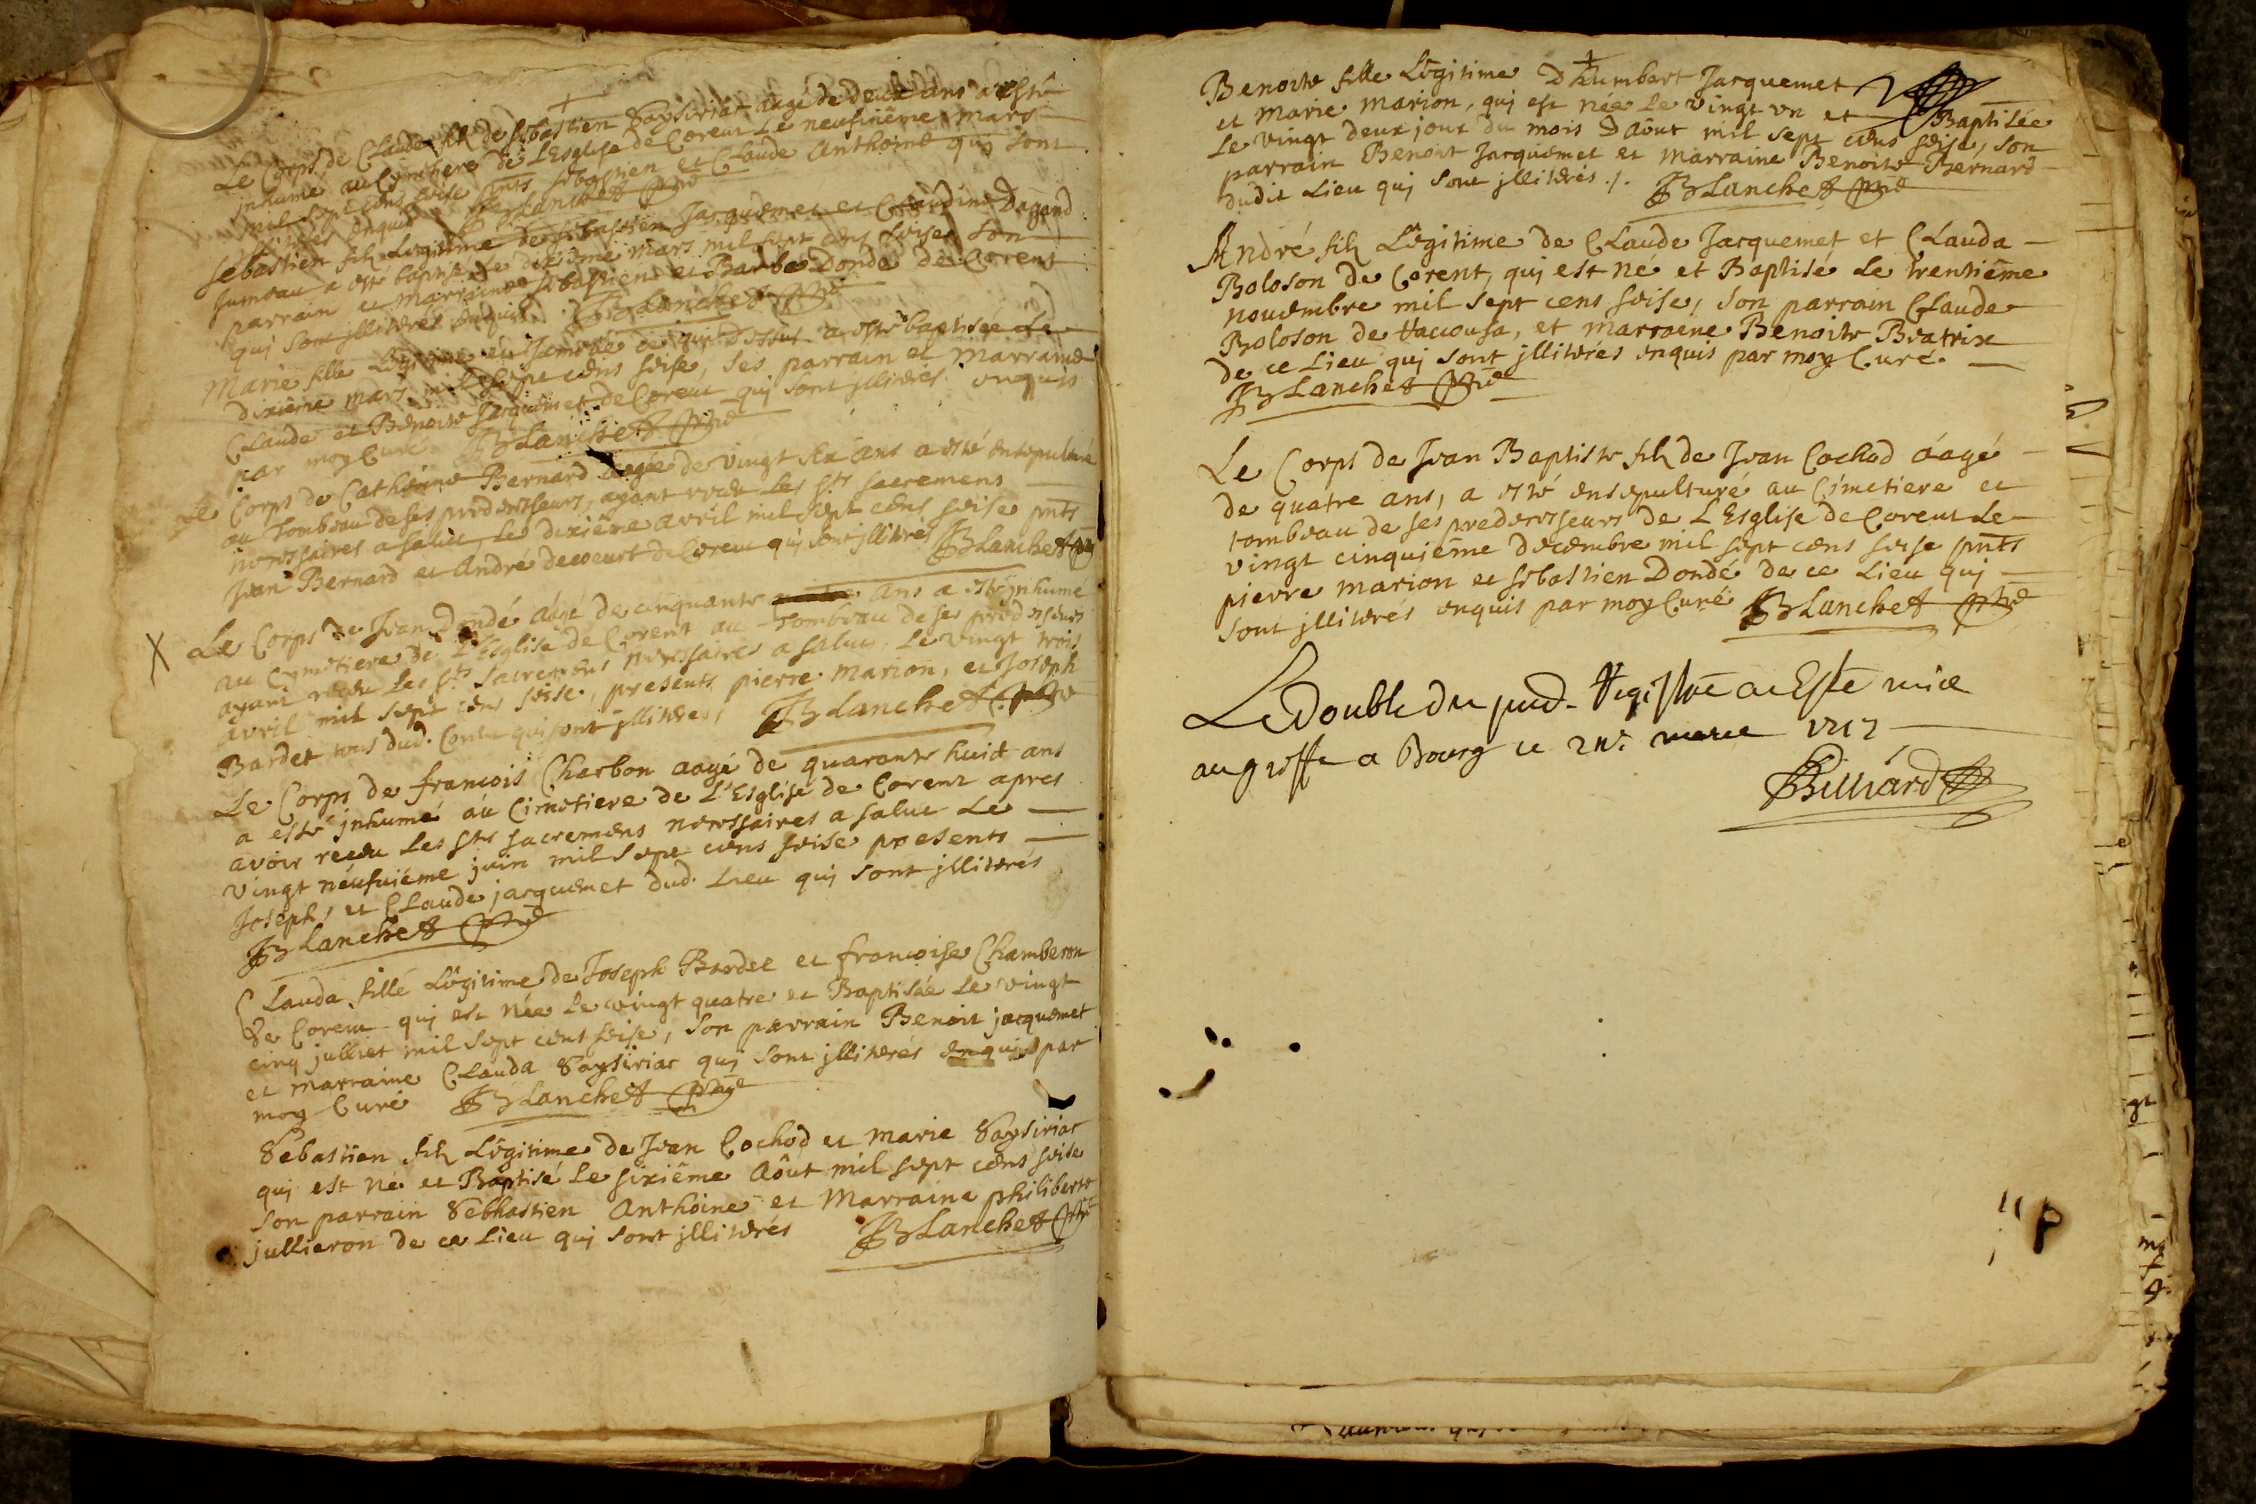 Le Corps de Claude filz de sebastien Saysiriat aagé de deux ans a esté
inhumé au Cymetiere de L'Esglise de Corent Le neufiuême mars
mil sept cens seise pnts sebastien et Claude Anthoine quj sont
illiterés enquis. JBLanchet ptre
Sebastien filz Legitime de sebastien Jacquemet et Claudine Dagand
Jumeau a esté baptisé Le dixiême mars mil sept cens seise, son
parrain et marraine sebastien et Barbe Dondé de Corent
quj sont jlliterés enquis. JBLanchet ptre
Marie fille Legitime dessus a esté baptisée Le
dixiême mars mil sept cens seise, ses parrain et marraine
Claude et Benoite Jacquemet de Corent quj sont jlliterés enquis
par moy Curé. JBLanchet ptre
Le Corps de Catherine Bernard aagée de vingt six ans a esté ensepulturé
au Tombeau de ses predecesseurs, ayant receu Les sts sacremens
necessaires a salut, Le dixiême avril mil sept cens seise pnts
Jean Bernard et André decoeurt de Corent quj sont jlliterés JBLanchet ptre
Le Corps de Jean Dondé aagé de cinquante ans a esté jnhumé
au Cymetiere de L'Esglise de Corent au Tombeau de ses predecesseurs
ayant receu Les sts Sacremens necessaires a salut, Le vingt trois
avril mil sept cens seise, presents pierre Marion, et Joseph
Bardet tous dud. Corent quj sont jlliterés JBLanchet ptre
Le Corps de francois Charbon aagé de quarante huict ans
a esté jnhumé au Cimetiere de L'Esglise de Corent apres
avoir receu Les sts sacremens necessaires a salut Le
vingt neufuiéme juin mil sept cens seise presents
Joseph, et Claude jacquemet dud. Lieu quj sont jlliterés
JBLanchet ptre
Clauda fille Légitime de Joseph Bardet et francoise Chamberon
de Corent quj est née Le vingt quatre et Baptisée Le vingt
cinq julliet mil sept cens seise, son parrain Benoit jacquemet
et marraine Clauda Saysiriat quj sont jlliterés enquis par
moy Curé JBLanchet ptre
Sebastien filz Légitime de Jean Cochod et marie Saysiriat
quj est né et Baptisé Le sixiême Août mil sept cens seise
son parrain Sebhastien Anthoine et Marraine philiberte
jullieron de ce Lieu quj sont jlliterés JBLanchet ptre
Benoite fille Légitime D'humbert Jacquemet
et Marie Marion, quj est née Le vingt un et Baptisée
Le vingt deux jour du mois D'Aôut mil sept cens seise, son
parrain Benoit Jacquemet et marraine Benoite Bernard
dudit Lieu quj sont jlliterés ./. JBLanchet ptre
André filz Légitime de Claude Jacquemet et Clauda
Boloson de Corent, quj est né et Baptisé Le trentiême
novembre mil sept cens seise, son parrain Claude
Boloson de et marraene Benoite Beatrix
de ce Lieu quj sont jlliterés enquis par moy Curé.
JBLanchet ptre
Le Corps de Jean Baptiste filz de Jean Cochod áagé
de quatre ans, a esté ensepulturé au Cimetiere et
tombeau de ses predecesseurs de L'Esglise de Corent Le
vingt cinquiéme decembre mil sept cens seise pnts
pierre marion et sebastien Dondé de ce Lieu quj
sont jlliterés enquis par moy Curé JBLanchet ptre
Le double du pnt Registre a esté mis
au greffe a Bourg le 1717
Billiard